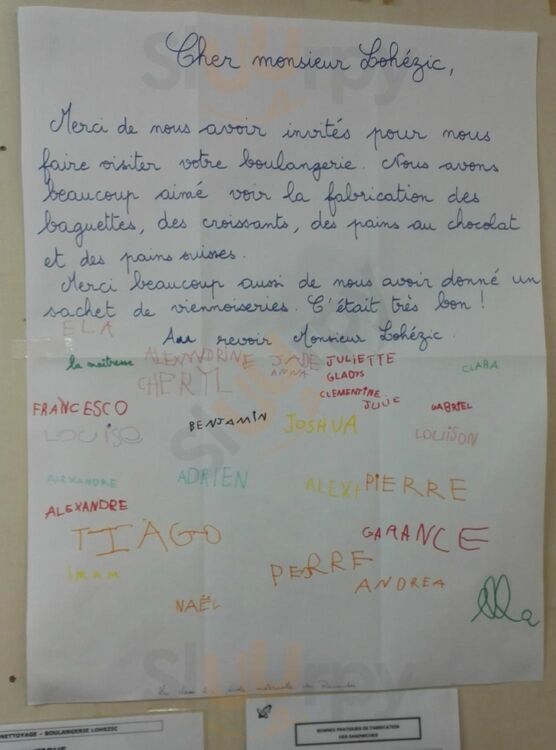 Cher monsieur Lohézic,
Merci de nous avoir invités pour nous
faire visiter votre boulangerie. Nous avons
beaucoup aimé voir la fabrication des
baguettes, des croissants, des pains au chocolat
et des pains suisses.
Merci beaucoup aussi de nous avoir donné un
sachet de viennoiseries. C'était très bon !
Au revoir Monsieur Lohézic.
ELA
la maîtresse ALEXANDRINE JADE JULIETTE CLARA
ANNA GLADYS
CHERYL CLEMENTINE
JULIE
FRANCESCO GABRIEL
LOUISE BENJAMIN JOSHUA LOUISON
ALEXANDRE ADRIEN ALEXT PIERRE
ALEXANDRE
TIAGO GARANCE
IMAM PERRE ANDREA
NAËL
Sluurpy
NETTOYAGE - BOULANGERIE LOHEZIC
BONNES PRATIQUES DE FABRICATION
DES SANDWICHES